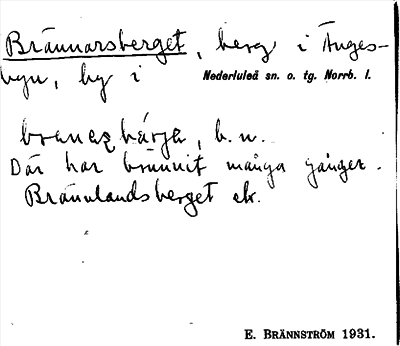 Brännarsberget, berg i Ånges-
byn, by i Nederluleå sn. o. tg. Norrb. l.
bränaʂbárjə, b. n.
Där har brunnit många gånger.
Brännlandsberget ek.
E. BRÄNNSTRÖM 1931.